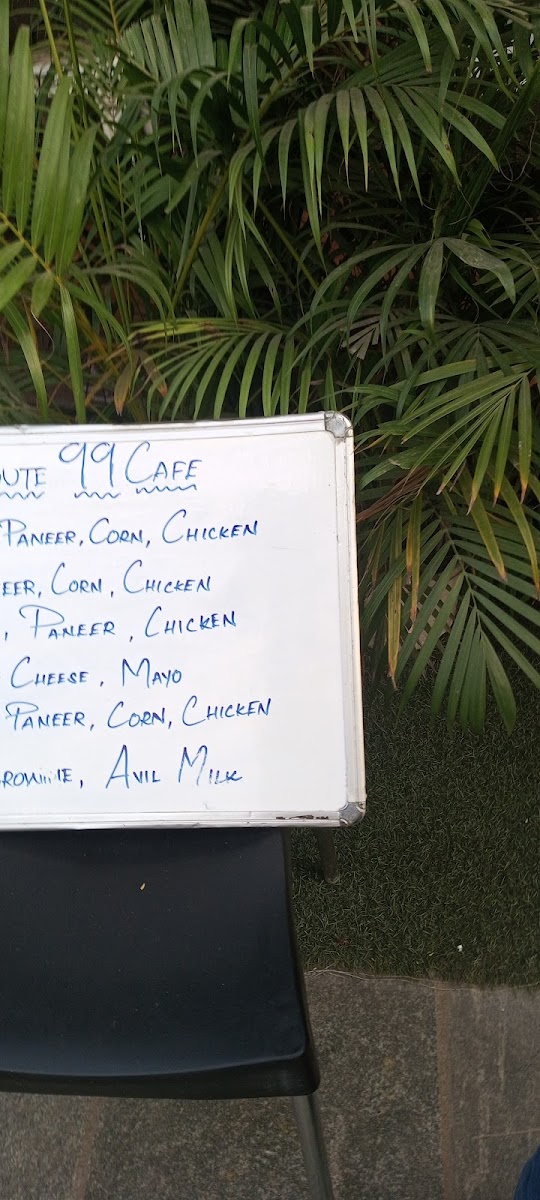 OUTE 99 CAFE
PANEER, CORN, CHICKEN
EER, CORN, CHICKEN
, PANEER, CHICKEN
CHEESE, MAYO
PANEER, CORN, CHICKEN
ROWNIE, AVIL MILK